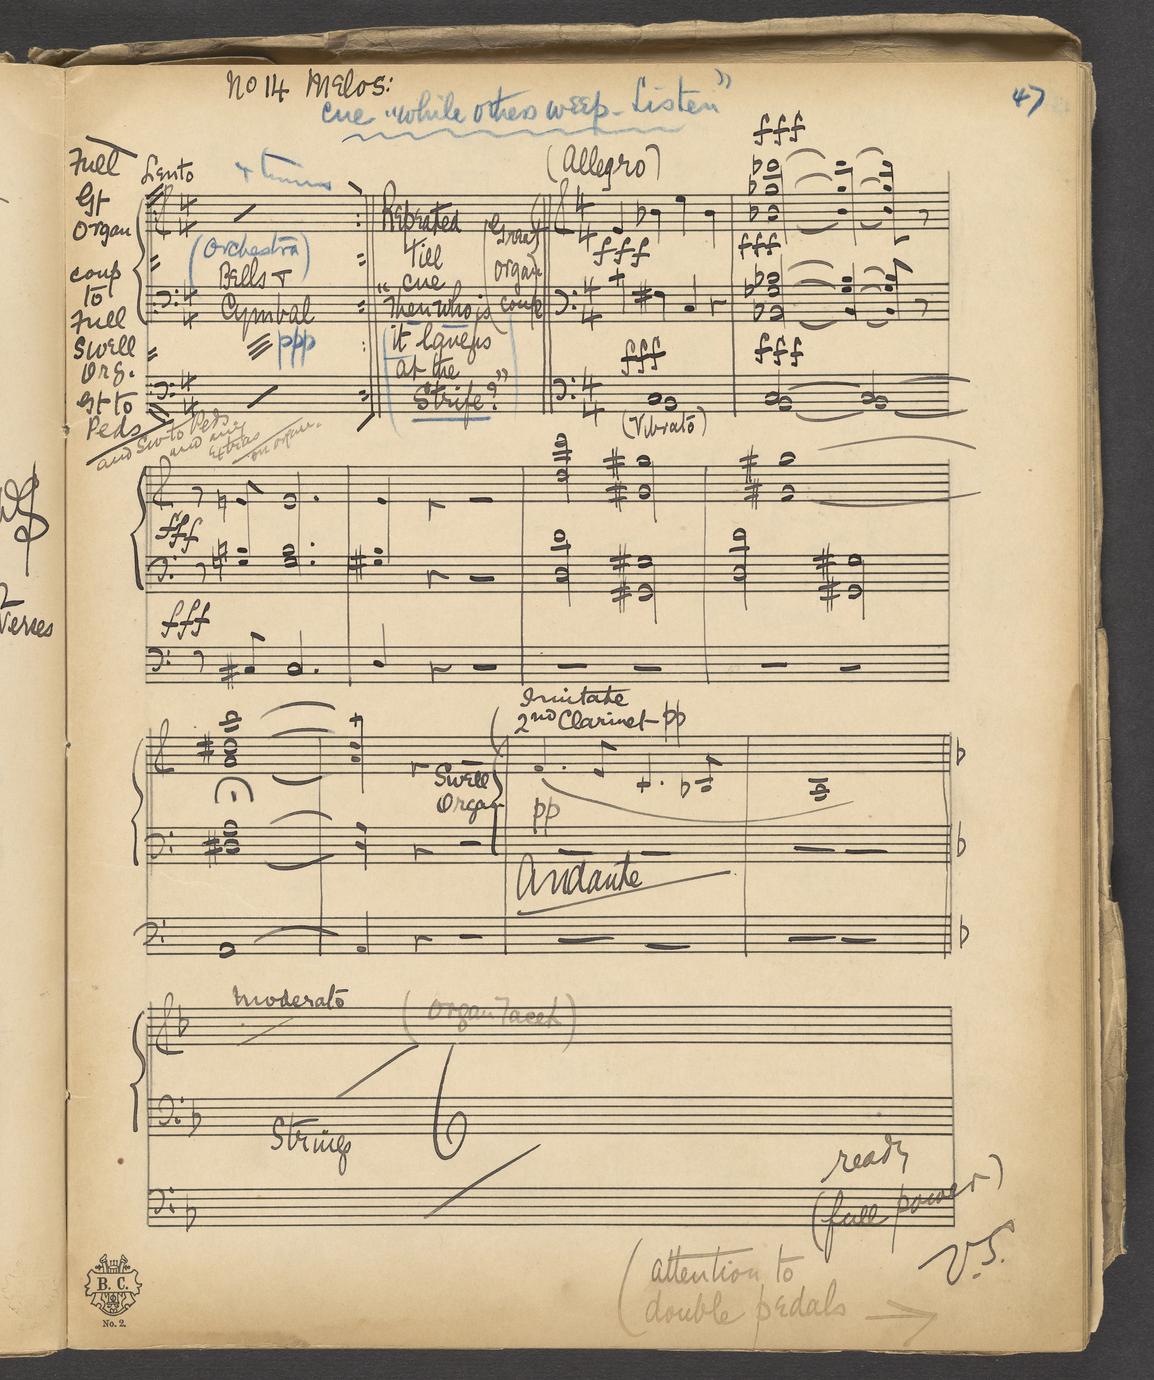 No 14 Melos:
cue "while others weep - Listen"
47
Full
Gt
Organ
coup
to
Full
Swell
Org.
Gt to
Peds
and Sw to Peds
and any
extras
on organ.
Lento
(Orchestra)
Bells &
Cymbal
ppp
Repeated
till
cue
"Then who is
it laughs
at the
Strife?"
(Great
organ
coup
(Allegro)
fff
fff
fff
fff
fff
(Vibrato)
fff
fff
Swell
Organ
Imitate
2nd Clarinet - pp
pp
Andante
Moderato
(Organ Tacet)
6
Strings
ready
(full power)
V.S.
(attention to
double pedals
B. C.
No. 2.
Verses